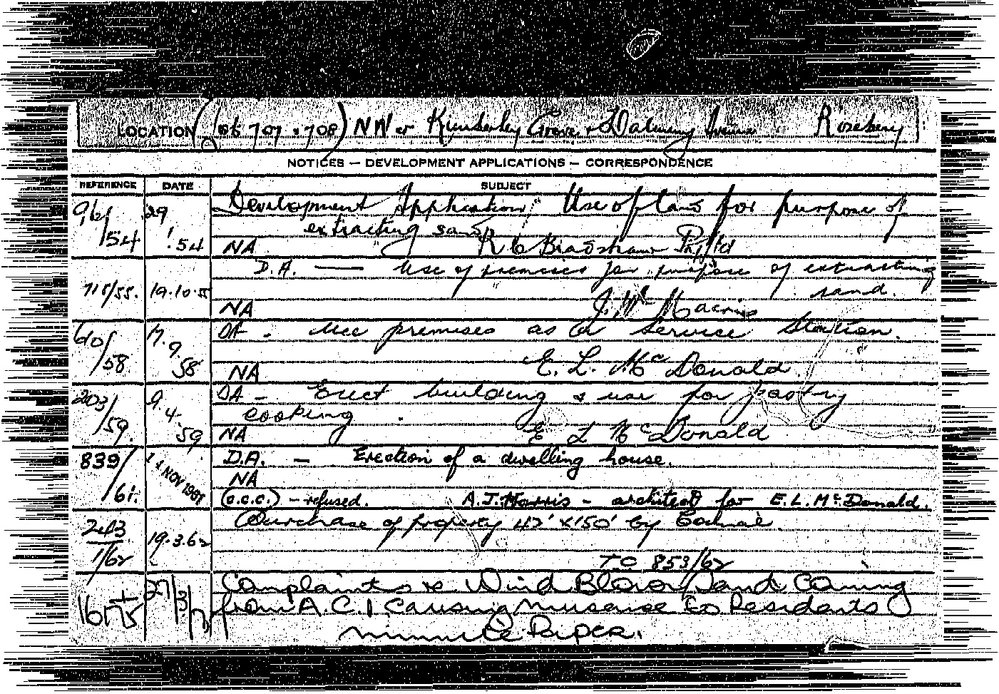 LOCATION (Lots 707 & 708) NW cr Kimberley Grove & Dalmeny Avenue Rosebery
NOTICES — DEVELOPMENT APPLICATIONS — CORRESPONDENCE
REFERENCE DATE SUBJECT
96/54 29 1.54 Development Application Use of land for purpose of
extracting sand
NA R C Bradshaw Pty Ltd
715/55. 19.10.55 D.A. — Use of premises for purpose of extracting
sand.
NA J. Mc
610/58 17.9.58 DA - Use premises as a Service Station.
NA E. L. McDonald
203/59 9.4.59 DA - Erect building & use for pastry
cooking.
NA E L McDonald
839/61. 14 NOV 1961 D.A. — Erection of a dwelling house.
NA
(c.c.c.) - refused. A.J. Harris - architect for E.L. McDonald.
243/1/62 19.3.62 Purchase of property 42' x 150' by Council
TO 853/62
27/3/ Complaints re Wind Blown Sand Coming
from A.C.I Causing nuisance to Residents
minute Paper.